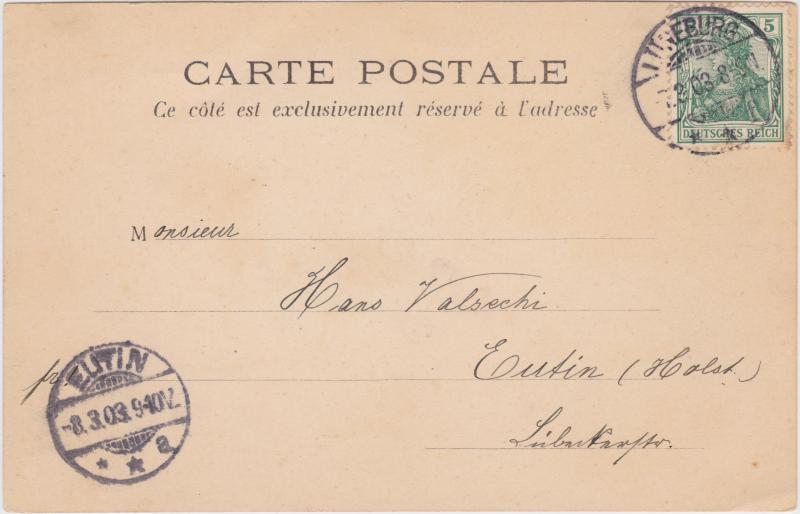 CARTE POSTALE
Ce côté est exclusivement réservé à l'adresse
LÜNEBURG
5
DEUTSCHES REICH
Monsieur
Hans Valsechi
Eutin (Holst.)
Lübeckerstr.
EUTIN
-8.3.03.9-10V.
* * a